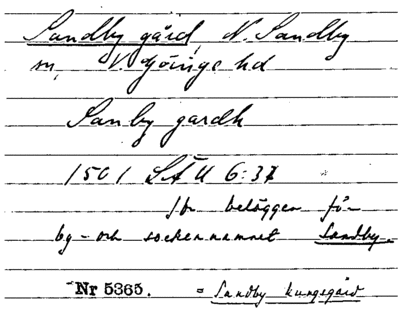 Sandby gård, N. Sandby
sn, V. Göinge hd
Sanby gardh
1501 SÄU 6:37
jfr beläggen för
by- och sockennamnet Sandby.
Nr 5365. = Sandby kungsgård